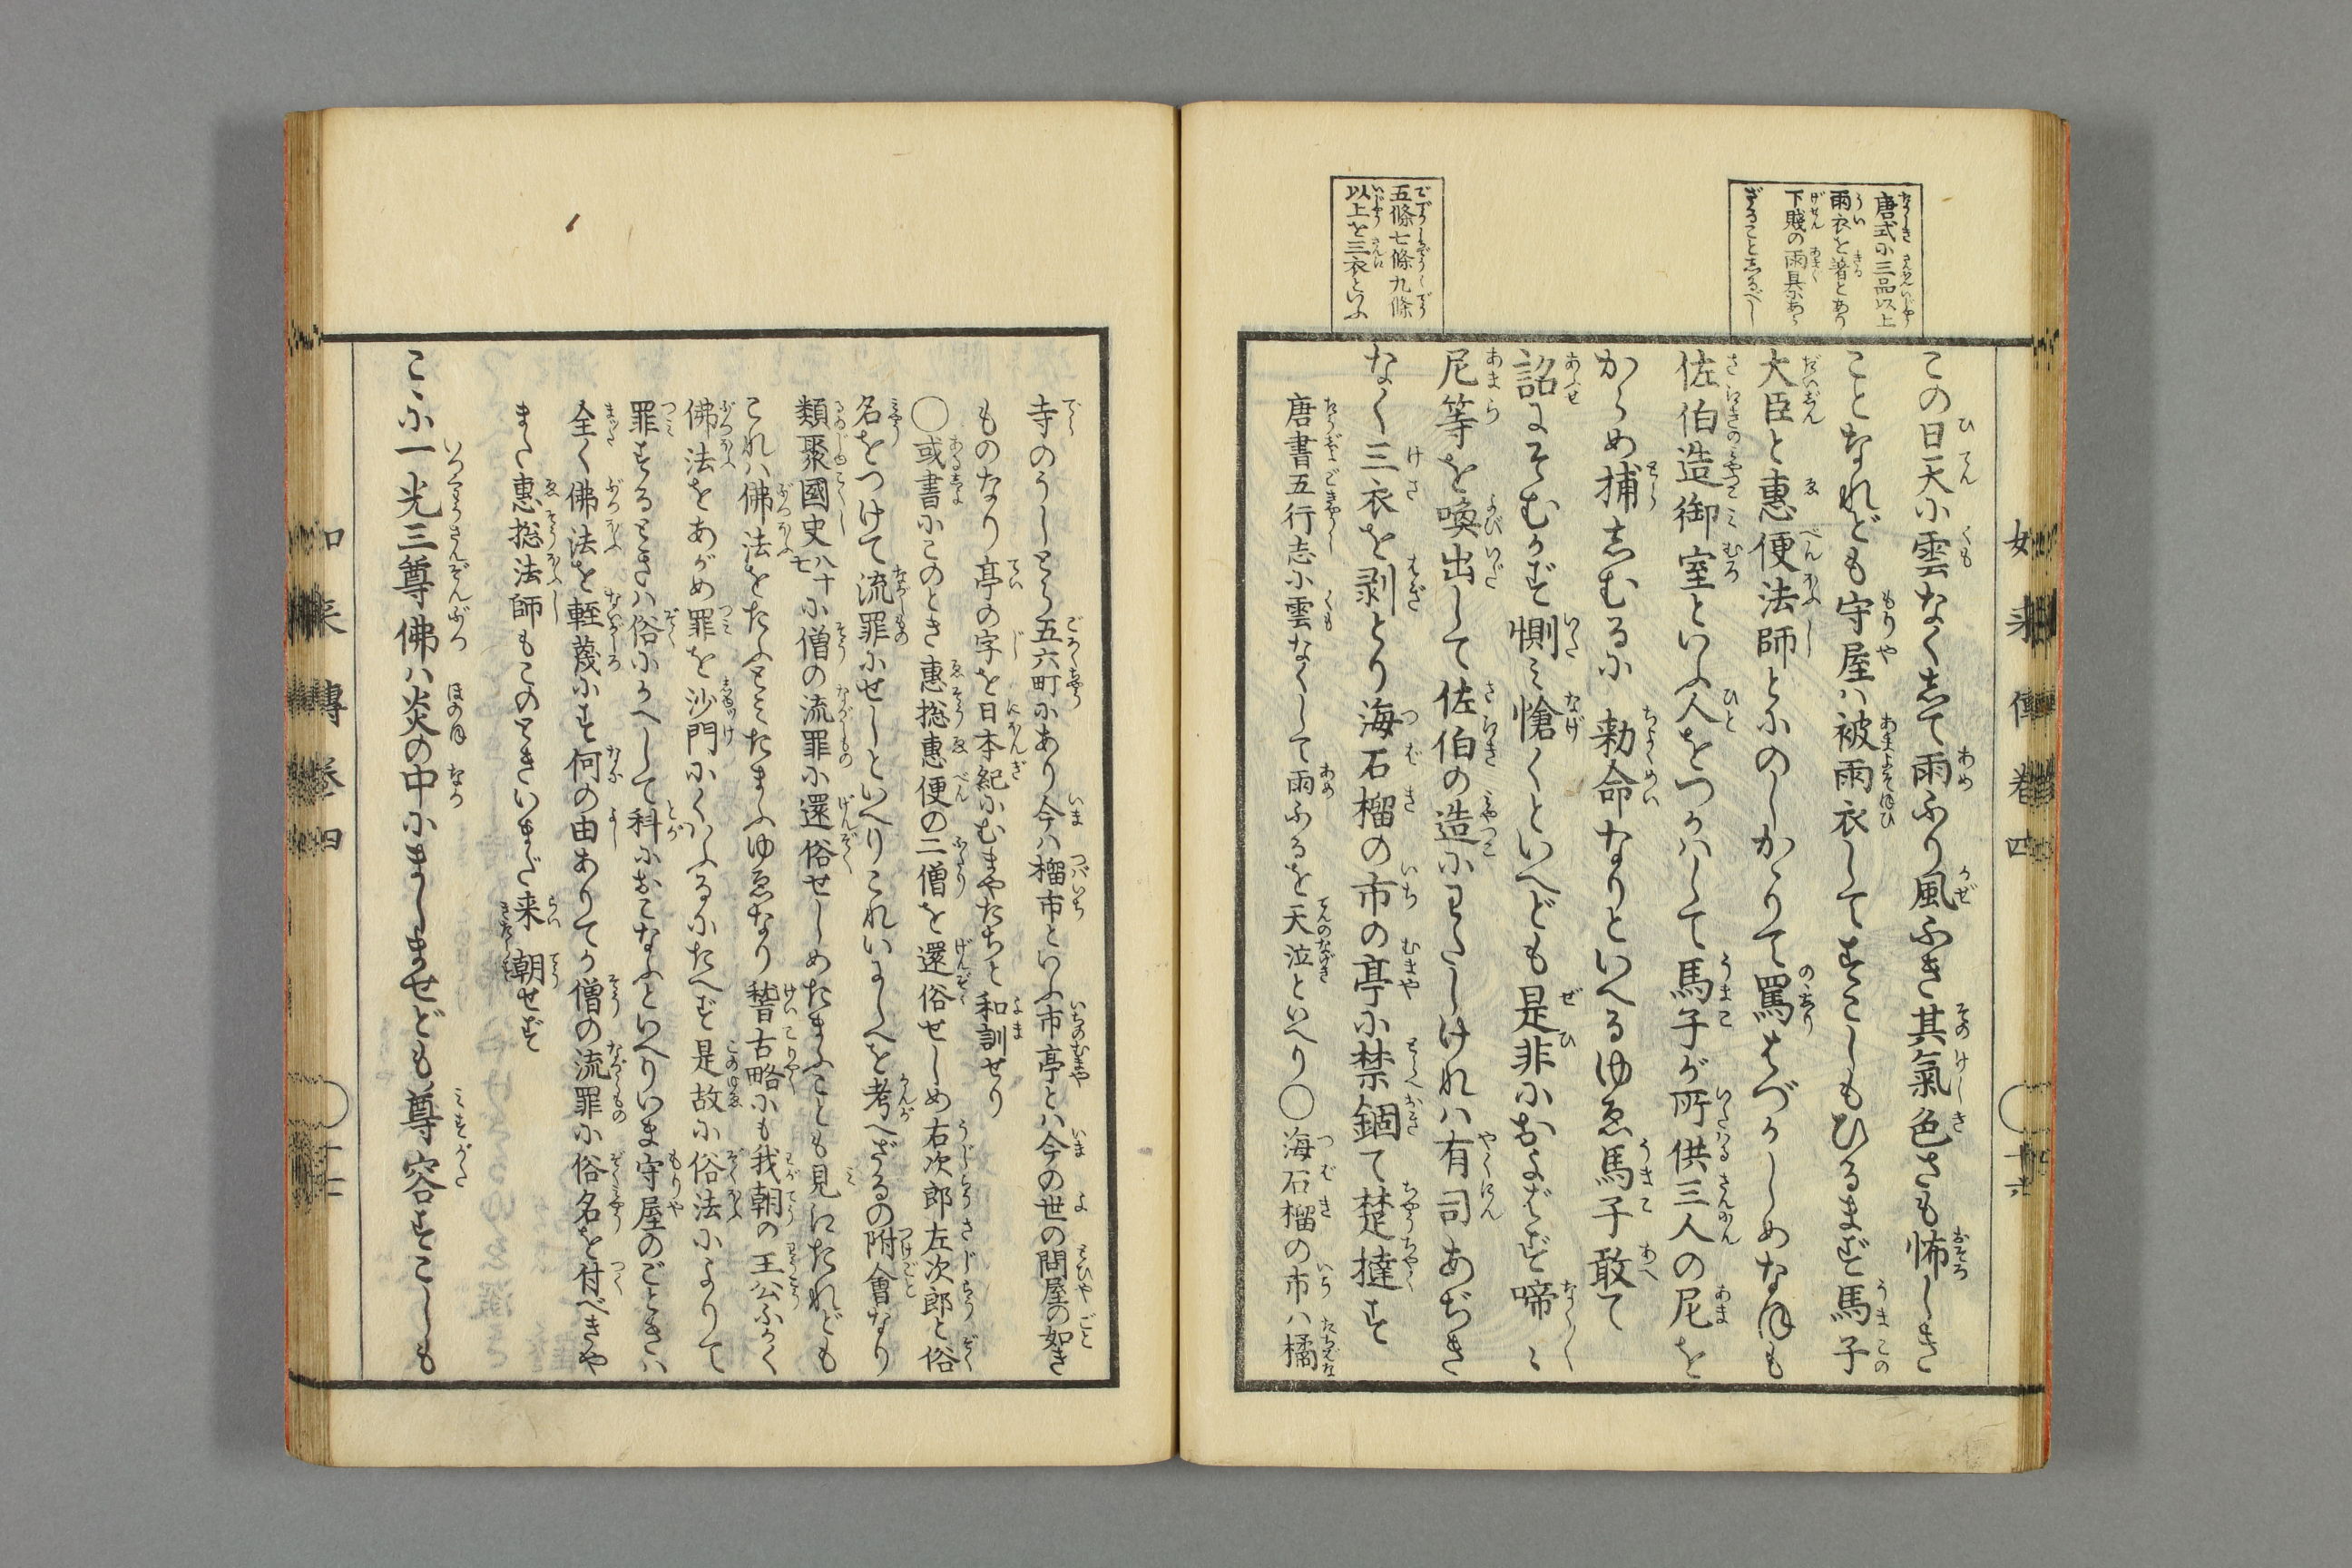 如来傳巻四
唐式小三品以上
雨衣を着とあり
下賤の雨具にあら
ざることしるべし
五條七條九條
以上を三衣といふ
この日天に雲なくして雨ふり風ふき其氣色さも怖しき
ことなれども守屋ハ被雨衣してすこしもひるまず馬子
大臣と惠便法師とにのしかゝりて罵はづかしめなほも
佐伯造御室といふ人をつかハして馬子が所供三人の尼を
からめ捕しむるに勅命なりといへるゆゑ馬子敢て
詔にそむかず惻ミ愴くといへども是非におよばず啼〻
尼等を喚出して佐伯の造にわたしけれハ有司あぢき
なく三衣を剥とり海石榴の市の亭に禁錮て楚撻す
唐書五行志に雲なくして雨ふるを天泣といへり〇海石榴の市ハ橘
寺のうしとら五六町にあり今ハ榴市といふ市亭とハ今の世の問屋の如き
ものなり亭の字を日本紀にむまやたちと和訓せり
〇或書にこのとき惠揔惠便の二僧を還俗せしめ右次郎左次郎と俗
名をつけて流罪にせしといへりこれいにしへを考へざるの附會なり
類聚國史八十七に僧の流罪に還俗せしめたまふことも見にたれども
これハ佛法をたふとミたまふゆゑなり稽古略にも我朝の王公ふかく
佛法をあがめ罪を沙門にくハふるにたへず是故に俗法によりて
罪するときハ俗にかへして科におこなふといへりいま守屋のごときハ
全く佛法を輕蔑にす何の由ありてか僧の流罪に俗名を付べきや
また惠揔法師もこのときいまだ来朝せず
こゝに一光三尊佛ハ炎の中にましませども尊容すこしも
如来傳巻四